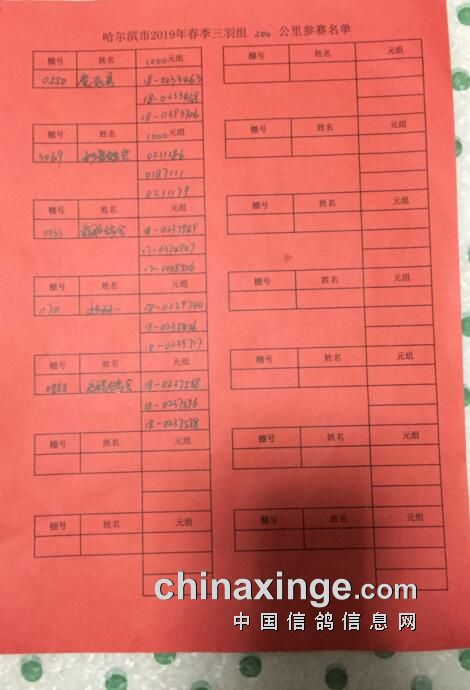 哈尔滨市2019年春季三羽组 200 公里参赛名单
棚号 姓名 1000元组
0550 18-0233463
18-0233458
18-0393706
棚号 姓名 1000元组
3069 0211186
0187111
0211179
棚号 姓名 元组
0033 18-0237989
17-0374907
17-0008506
棚号 姓名 元组
070 18-0239740
18-0239717
棚号 姓名 元组
0888 18-0237568
18-0237576
18-0237578
棚号 姓名 元组
棚号 姓名 元组
棚号 姓名 元组
棚号 姓名 元组
棚号 姓名 元组
棚号 姓名 元组
棚号 姓名 元组
棚号 姓名 元组
棚号 姓名 元组
chinaxinge.com
中国信鸽信息网